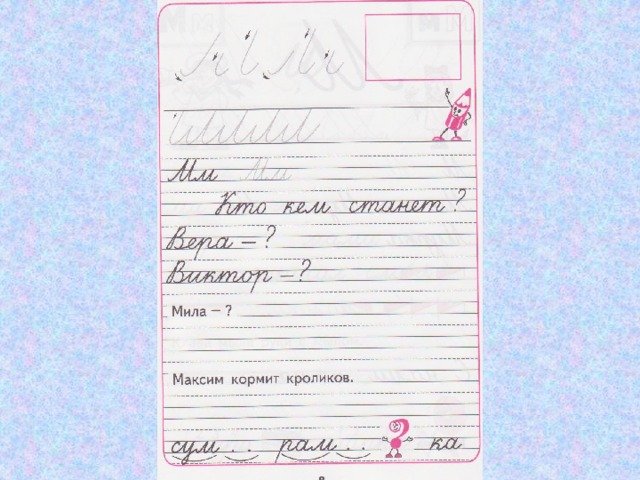 Мм Мм
Кто кем станет?
Вера – ?
Виктор – ?
Мила – ?
Максим кормит кроликов.
сум . . рам . . ка